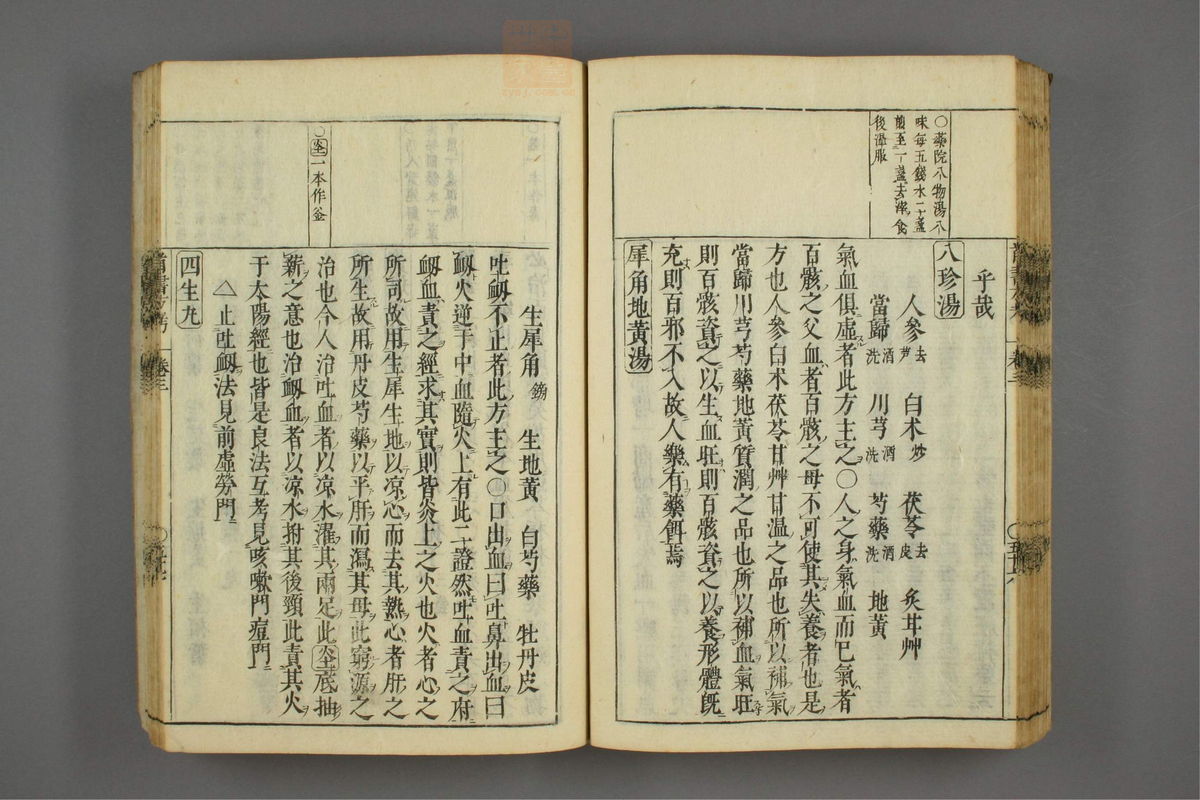 乎哉
八珍湯
人參去芦 白术炒 茯苓去皮 炙甘艸
當歸酒洗 川芎酒洗 芍藥酒洗 地黃
氣血俱虛者此方主之〇人之身氣血而已氣者
百骸之父血者百骸之母不可使其失養者也是
方也人參白术茯苓甘艸甘溫之品也所以補氣
當歸川芎芍藥地黃質潤之品也所以補血氣旺
則百骸資之以生血旺則百骸資之以養形體旣
充則百邪不入故人樂有藥餌焉
犀角地黃湯
〇藥院八物湯八
味每五錢水二盞
煎至一盞去滓食
後溫服
生犀角鎊 生地黃 白芍藥 牡丹皮
吐衂不止者此方主之〇口出血曰吐鼻出血曰
衂火逆于中血隨火上有此二證然吐血責之府
衂血責之經求其實則皆炎上之火也火者心之
所司故用生犀生地以凉心而去其熱心者肝之
所生故用丹皮芍藥以平肝而瀉其母此窮源之
治也今人治吐血者以凉水濯其兩足此坙底抽
薪之意也治衂血者以凉水拊其後頸此責其火
于太陽經也皆是良法互考見咳嗽門痘門
△止吐衂法見前虛勞門
四生丸
〇坙一本作釜
卷三